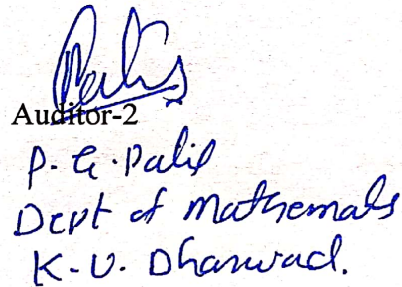 Auditor-2
P. G. Patil
Dept of Mathemats
K.U. Dharwad.